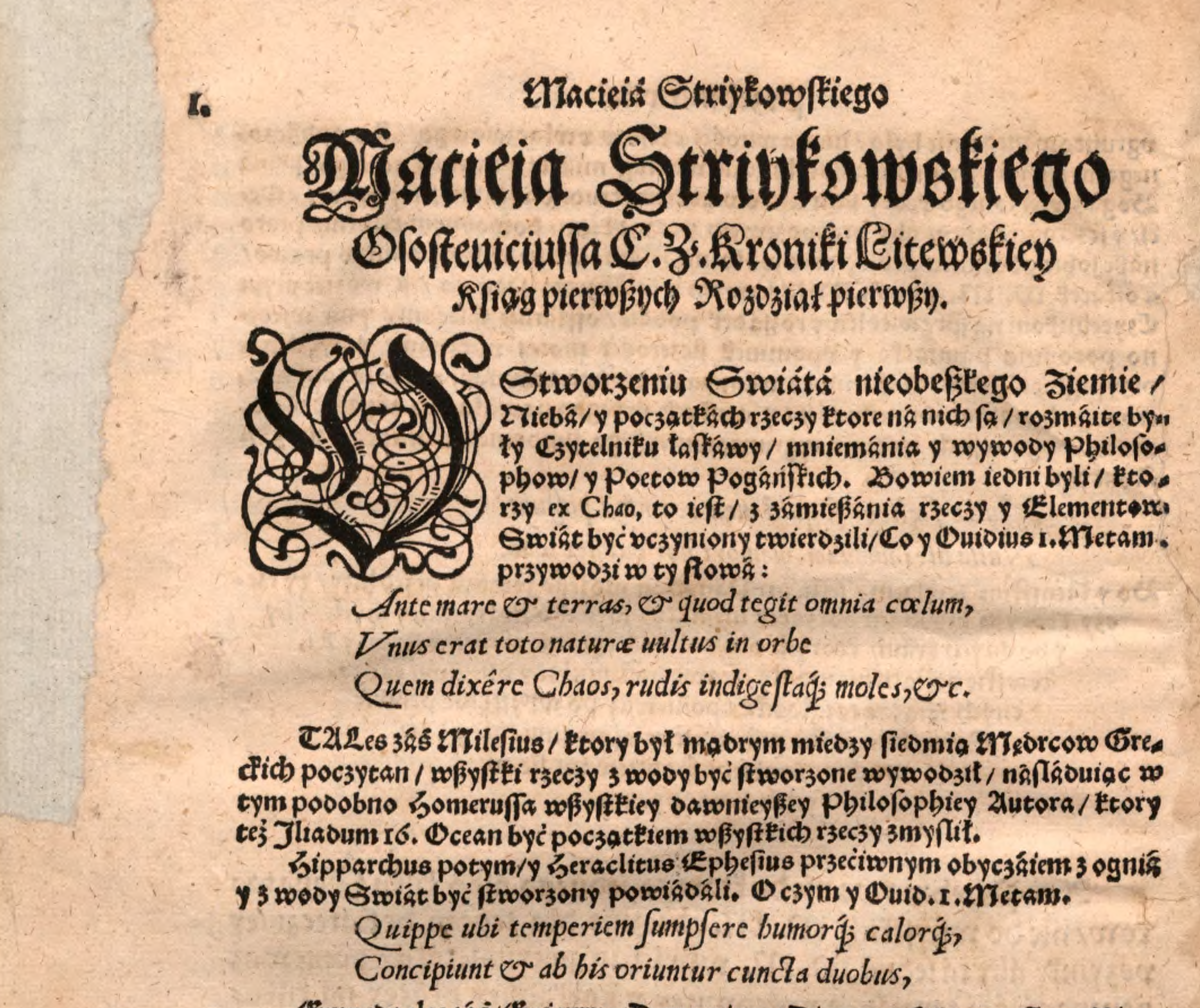 I.
Macieiá Striykowſkiego
Macieia Striykowskiego
Oſoſteuiciuſſa C. Z. Kroniki Litewskiey
Kśiąg pierwßych Rozdział pierwßy.
O Stworzeniu Swiátá nieobeßłego Ziemie /
Niebá / y początkách rzeczy ktore ná nich ſą / rozmáite by⸗
ły Czytelniku łáſkáwy / mniemánia y wywody Philoſo⸗
phow / y Poetow Pogáńſkich. Bowiem iedni byli / kto⸗
rzy ex Chao, to ieſt / z zámießánia rzeczy y Elementow
Swiát być vczyniony twierdzili / Co y Ouidius 1. Metam.
przywodzi w ty ſłowá:
Ante mare & terras, & quod tegit omnia cœlum,
Vnus erat toto naturæ uultus in orbe
Quem dixêre Chaos, rudis indigeſtaq́; moles, &c.
TALes záś Mileſius / ktory był mądrym miedzy ſiedmią Mędrcow Gre⸗
ckich poczytan / wßyſtki rzeczy z wody być ſtworzone wywodził / náſláduiąc w
tym podobno Homeruſſa wßyſtkiey dawnieyßey Philoſophiey Autora / ktory
też Iliadum 16. Ocean być początkiem wßyſtkich rzeczy zmyſlił.
Hipparchus potym / y Heraclitus Epheſius przećiwnym obyczáiem z ogniá
y z wody Swiát być ſtworzony powiádáli. O czym y Ouid. 1. Metam.
Quippe ubi temperiem ſumpſere humorq́; calorq́;,
Concipiunt & ab his oriuntur cuncta duobus,